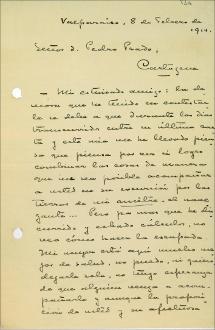 Valparaíso, 8 de Febrero de
1914.
Señor d. Pedro Prado,
Cartagena
- Mi estimado amigo: la de
mora que he tenido en contestar
la se debe a que durante los días
transcurridos entre su última car
ta y esta mía me he llevado pien
do que piensa por ver si logro
combinar las cosas de manera
que me sea posible acompañar
a usted en su excursión por las
tierras de
Pero por más que he dis
currido y echado cálculos, no
veo cómo hacer la escapada.
Mi mamá está aquí mucho me
jor de salud, no puedo, ni quiero
dejarla sola, no tengo esperanza
de que alguien venga a acom
pañarla y aunque la proposi
ción de usted y su afectuosa